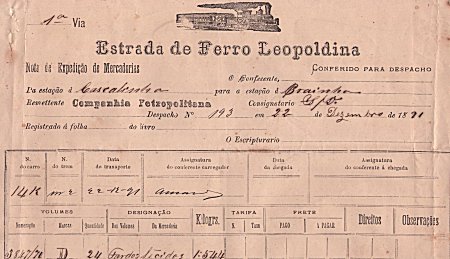 1a Via
Estrada de Ferro Leopoldina
Nota de Expedição de Mercadorias
CONFERIDO PARA DESPACHO
O Conferente,
Da estação d Cascatinha para a estação d Prainha
Remettente Companhia Petropolitana Consignatario
Despacho Nº 193 em 22 de Dezembro de 1891
Registrado á folha do livro
O Escripturario
N. do carro N. do trem Data de transporte Assignatura do conferente carregador Data da chegada Assignatura do conferente á chegada
14K 22-12-91
VOLUMES DESIGNAÇÃO Kilogrs. TARIFA FRETE Direitos Observações
Numeração Marcas Quantidade Dos Volumes Da Mercadoria N. Tam PAGO A PAGAR
24 Fardos tecidos 1:544